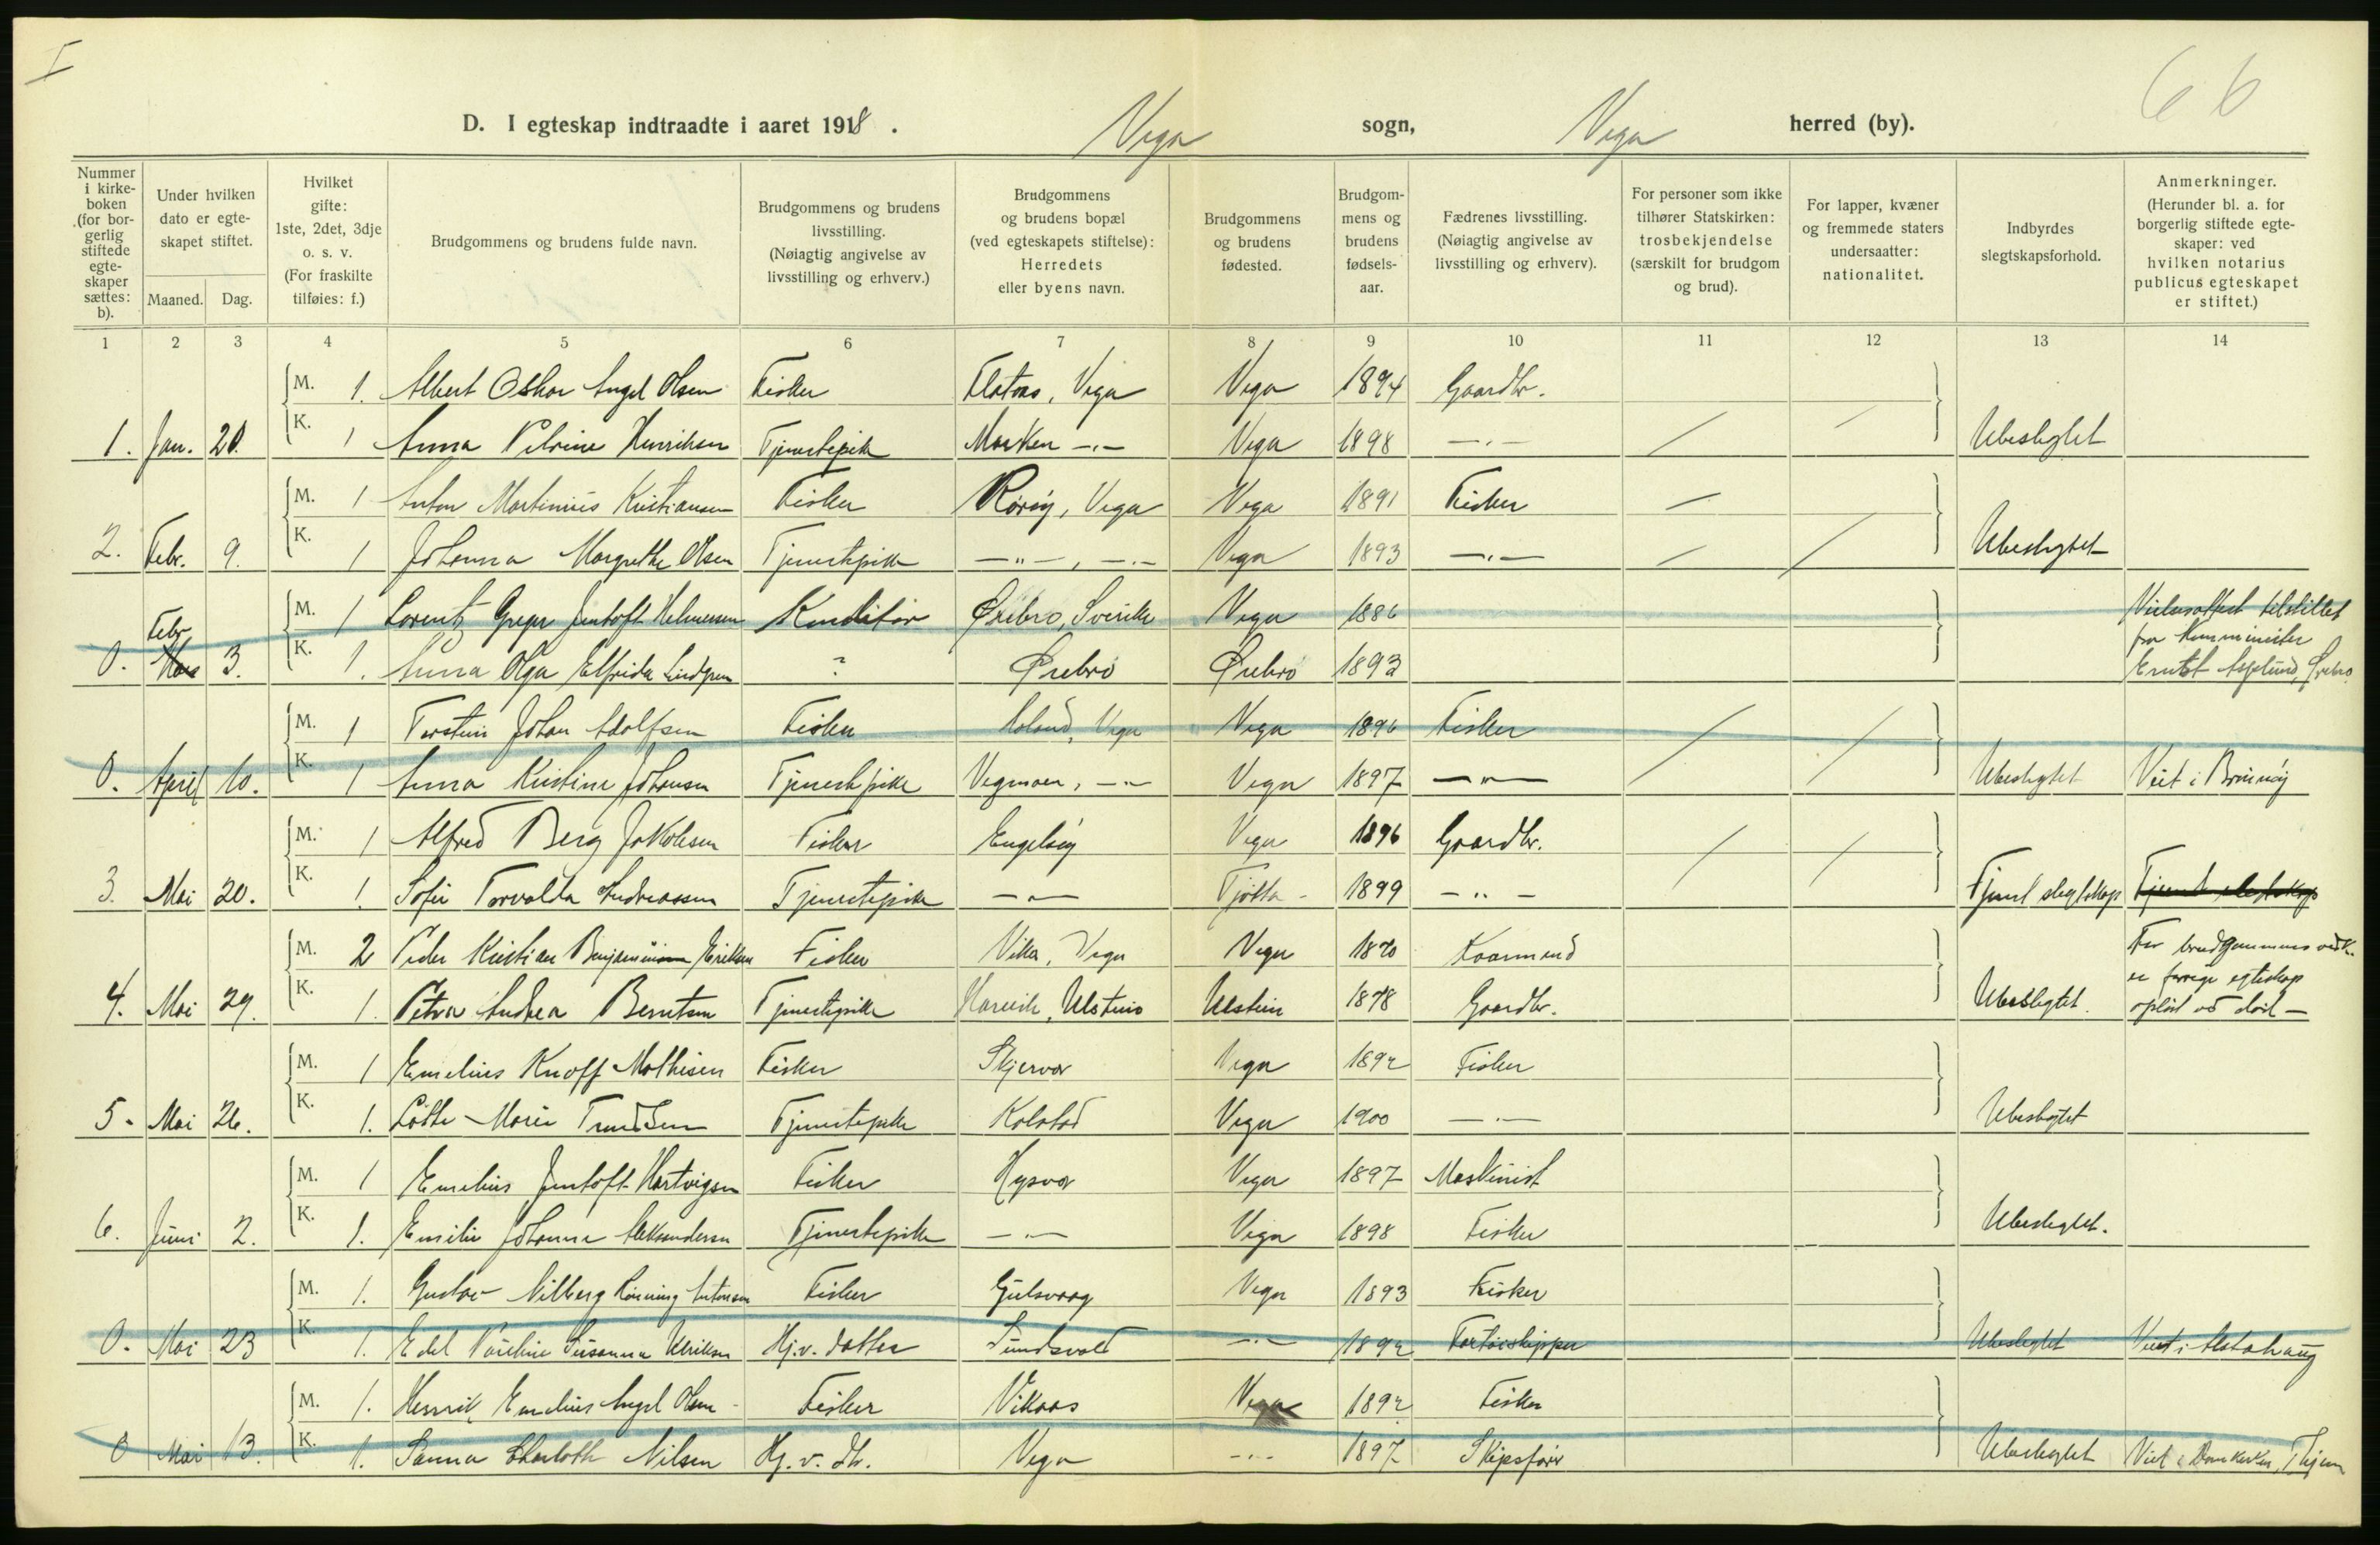 I
66
D. I egteskap indtraadte i aaret 1918. Vega sogn, Vega herred (by).
Nummer i kirkeboken (for borgerlig stiftede egteskaper sættes: b).
Under hvilken dato er egteskapet stiftet.
Maaned. Dag.
Hvilket gifte: 1ste, 2det, 3dje o. s. v. (For fraskilte tilføies: f.)
Brudgommens og brudens fulde navn.
Brudgommens og brudens livsstilling. (Nøiagtig angivelse av livsstilling og erhverv.)
Brudgommens og brudens bopæl (ved egteskapets stiftelse): Herredets eller byens navn.
Brudgommens og brudens fødested.
Brudgommens og brudens fødselsaar.
Fædrenes livsstilling. (Nøiagtig angivelse av livsstilling og erhverv).
For personer som ikke tilhører Statskirken: trosbekjendelse (særskilt for brudgom og brud).
For lapper, kvæner og fremmede staters undersaatter: nationalitet.
Indbyrdes slegtskapsforhold.
Anmerkninger. (Herunder bl. a. for borgerlig stiftede egteskaper: ved hvilken notarius publicus egteskapet er stiftet.)
1 2 3 4 5 6 7 8 9 10 11 12 13 14
M. 1. Albert Oskar Angel Olsen Fisker Flataas, Vega Vega 1894 Gaardbr.
1. Jan. 20. K. 1 Anna Petrine Henriksen Tjenestepike Marken -"- Vega 1898 -"- / / Ubeslegtet
M. 1 Anton Martinius Kristiansen Fisker Rørøy, Vega Vega 1891 Fisker /
2. Febr. 9. K. 1 Johanna Margrethe Olsen Tjenestepike -"-, -"- Vega 1893 -"- / / Ubeslegtet
Febr. M. 1 Lorentz Greger Jentoft Helmersen Konditor Ørebro, Sverike Vega 1886 Vielsesattest tilstillet
fra Komminister
0. Mars 3. K. 1. Anna Olga Elfrida Lindgren ? Ørebro Ørebro 1893 Ernst Asplund, Ørebro
M. 1 Torstein Johan Adolfsen Fisker Holand, Vega Vega 1896 Fisker / /
0. April 10. K. 1 Anna Kristine Johansen Tjenestepike Vegmoen, -"- Vega 1897 -"- Ubeslegtet Viet i Brønnøy
M. 1 Alfred Berg Jakobsen Fisker Engelsøy Vega 1896 Gaardbr. / /
3. Mai 20. K. 1. Sofie Torvalda Andreassen Tjenestepike -"- Tjøtta 1899 -"- Fjernt slegtskap Fjernt slegtskap
M. 2 Peder Kristian Benjaminsen Eriksen Fisker Vika, Vega Vega 1870 Kaarmand For brudgommens vedk.
er forrige egteskap
4. Mai 29. K. 1. Petra Andrea Berntsen Tjenestepike Hareide, Ulstein Ulstein 1878 Gaardbr. Ubeslegtet. opløst ved død -
M. 1 Emelius Knoff Mathisen Fisker Skjervær Vega 1892 Fisker
5. Mai 26. K. 1. Lotte Marie Trondsen Tjenestepike Kolstad Vega 1900 -"- Ubeslegtet
M. 1 Emelius Jentoft Hartvigsen Fisker Hysvær Vega 1897 Maskinist
6. Juni 2. K. 1. Emilie Johanne Aleksandersen Tjenestepike -"- Vega 1898 Fisker Ubeslegtet.
M. 1. Gustav Vilberg Rønning Antonsen Fisker Gulsvaag Vega 1893 Fisker
0. Mai 23 K. 1. Edel Pauline Susanna Ulriksen Hj.v. datter Sundsvold -"- 1892 Fartøiskipper Ubeslegtet Viet i Alstahaug
M. 1. Henrik Emelius Angel Olsen Fisker Vikaas Vega 1892 Fisker
0 Mai 13. K. 1. Sanna Charlotte Nilsen Hj.v. dtr. Vega -"- 1897 Skipsfører Ubeslegtet Viet i Domkirken, Thjem